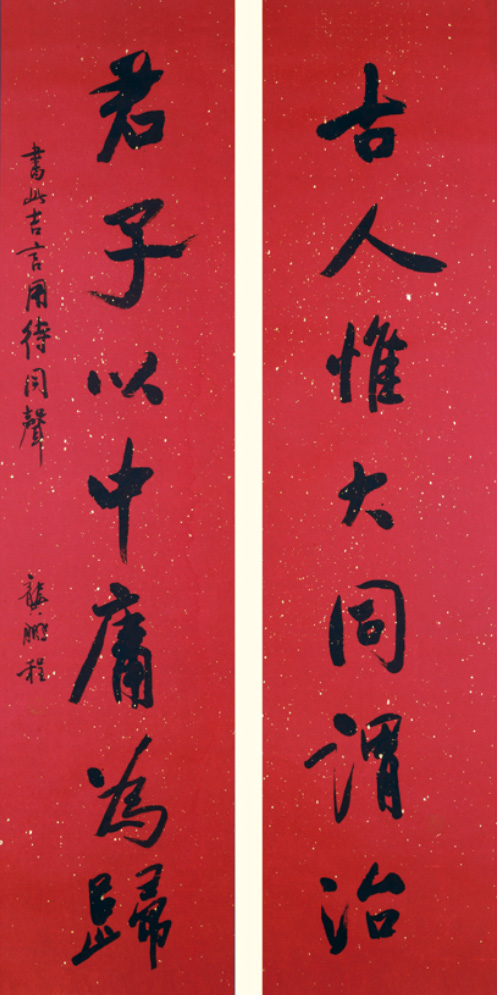 古人惟大同謂治
君子以中庸為歸
書此吉言用待同聲
龔鵬程